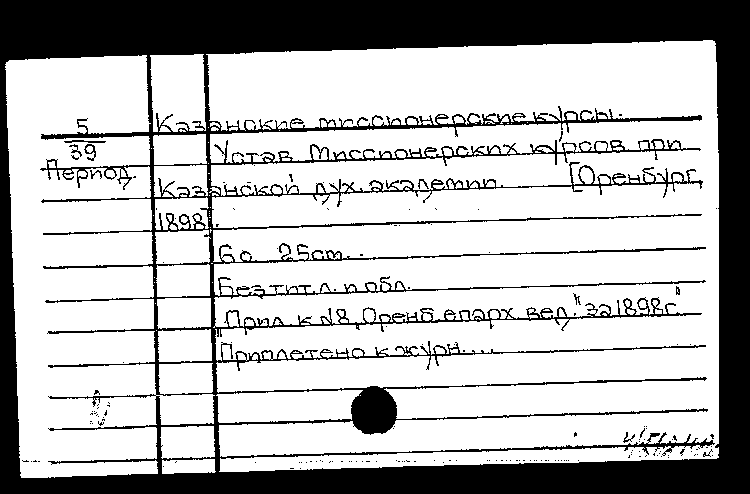 5 Казанские миссионерские курсы.
39 Устав Миссионерских курсов при
Период. Казанской дух. академии. [Оренбург,
1898].
6 с. 25 см.
Без тит. л. и обл.
"Прил. к №8, Оренб. епарх. вед." за 1898г."
Приплетено к журн....